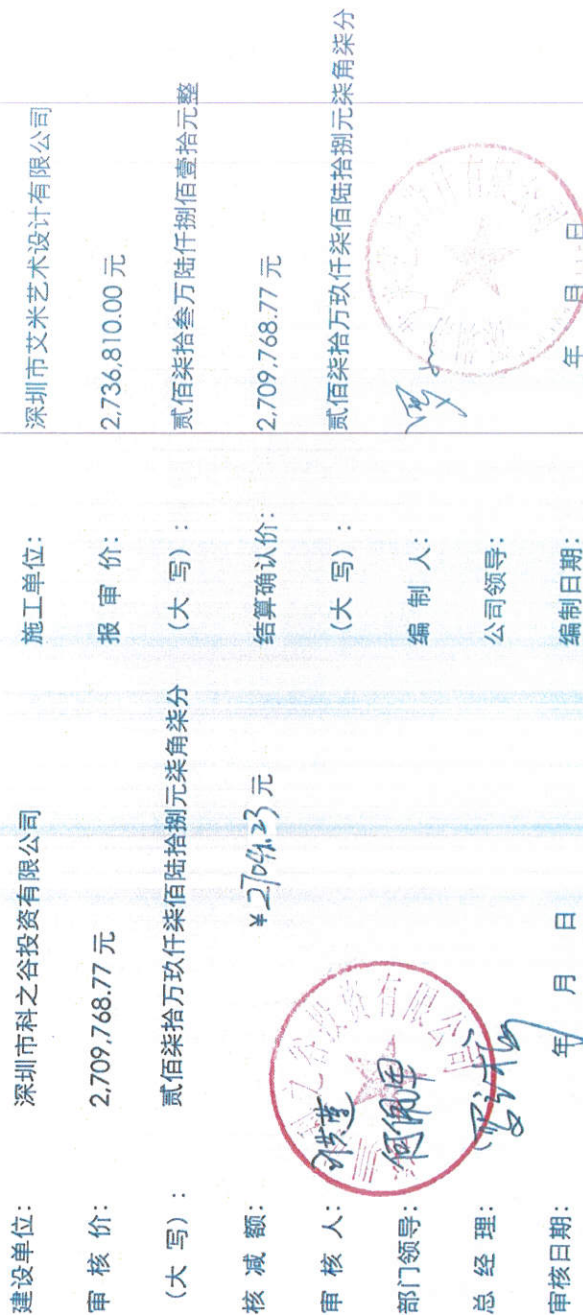 建设单位： 深圳市科之谷投资有限公司
审 核 价： 2,709,768.77 元
（大 写）： 贰佰柒拾万玖仟柒佰陆拾捌元柒角柒分
核 减 额： ￥27041.23 元
审 核 人：
部门领导： 何佩
总 经 理：
审核日期： 年 月 日
之谷投资有限公司
施工单位： 深圳市艾米艺术设计有限公司
报 审 价： 2,736,810.00 元
（大 写）： 贰佰柒拾叁万陆仟捌佰壹拾元整
结算确认价： 2,709,768.77 元
（大 写）： 贰佰柒拾万玖仟柒佰陆拾捌元柒角柒分
编 制 人：
公司领导：
编制日期： 年 月 日
设计有限公司